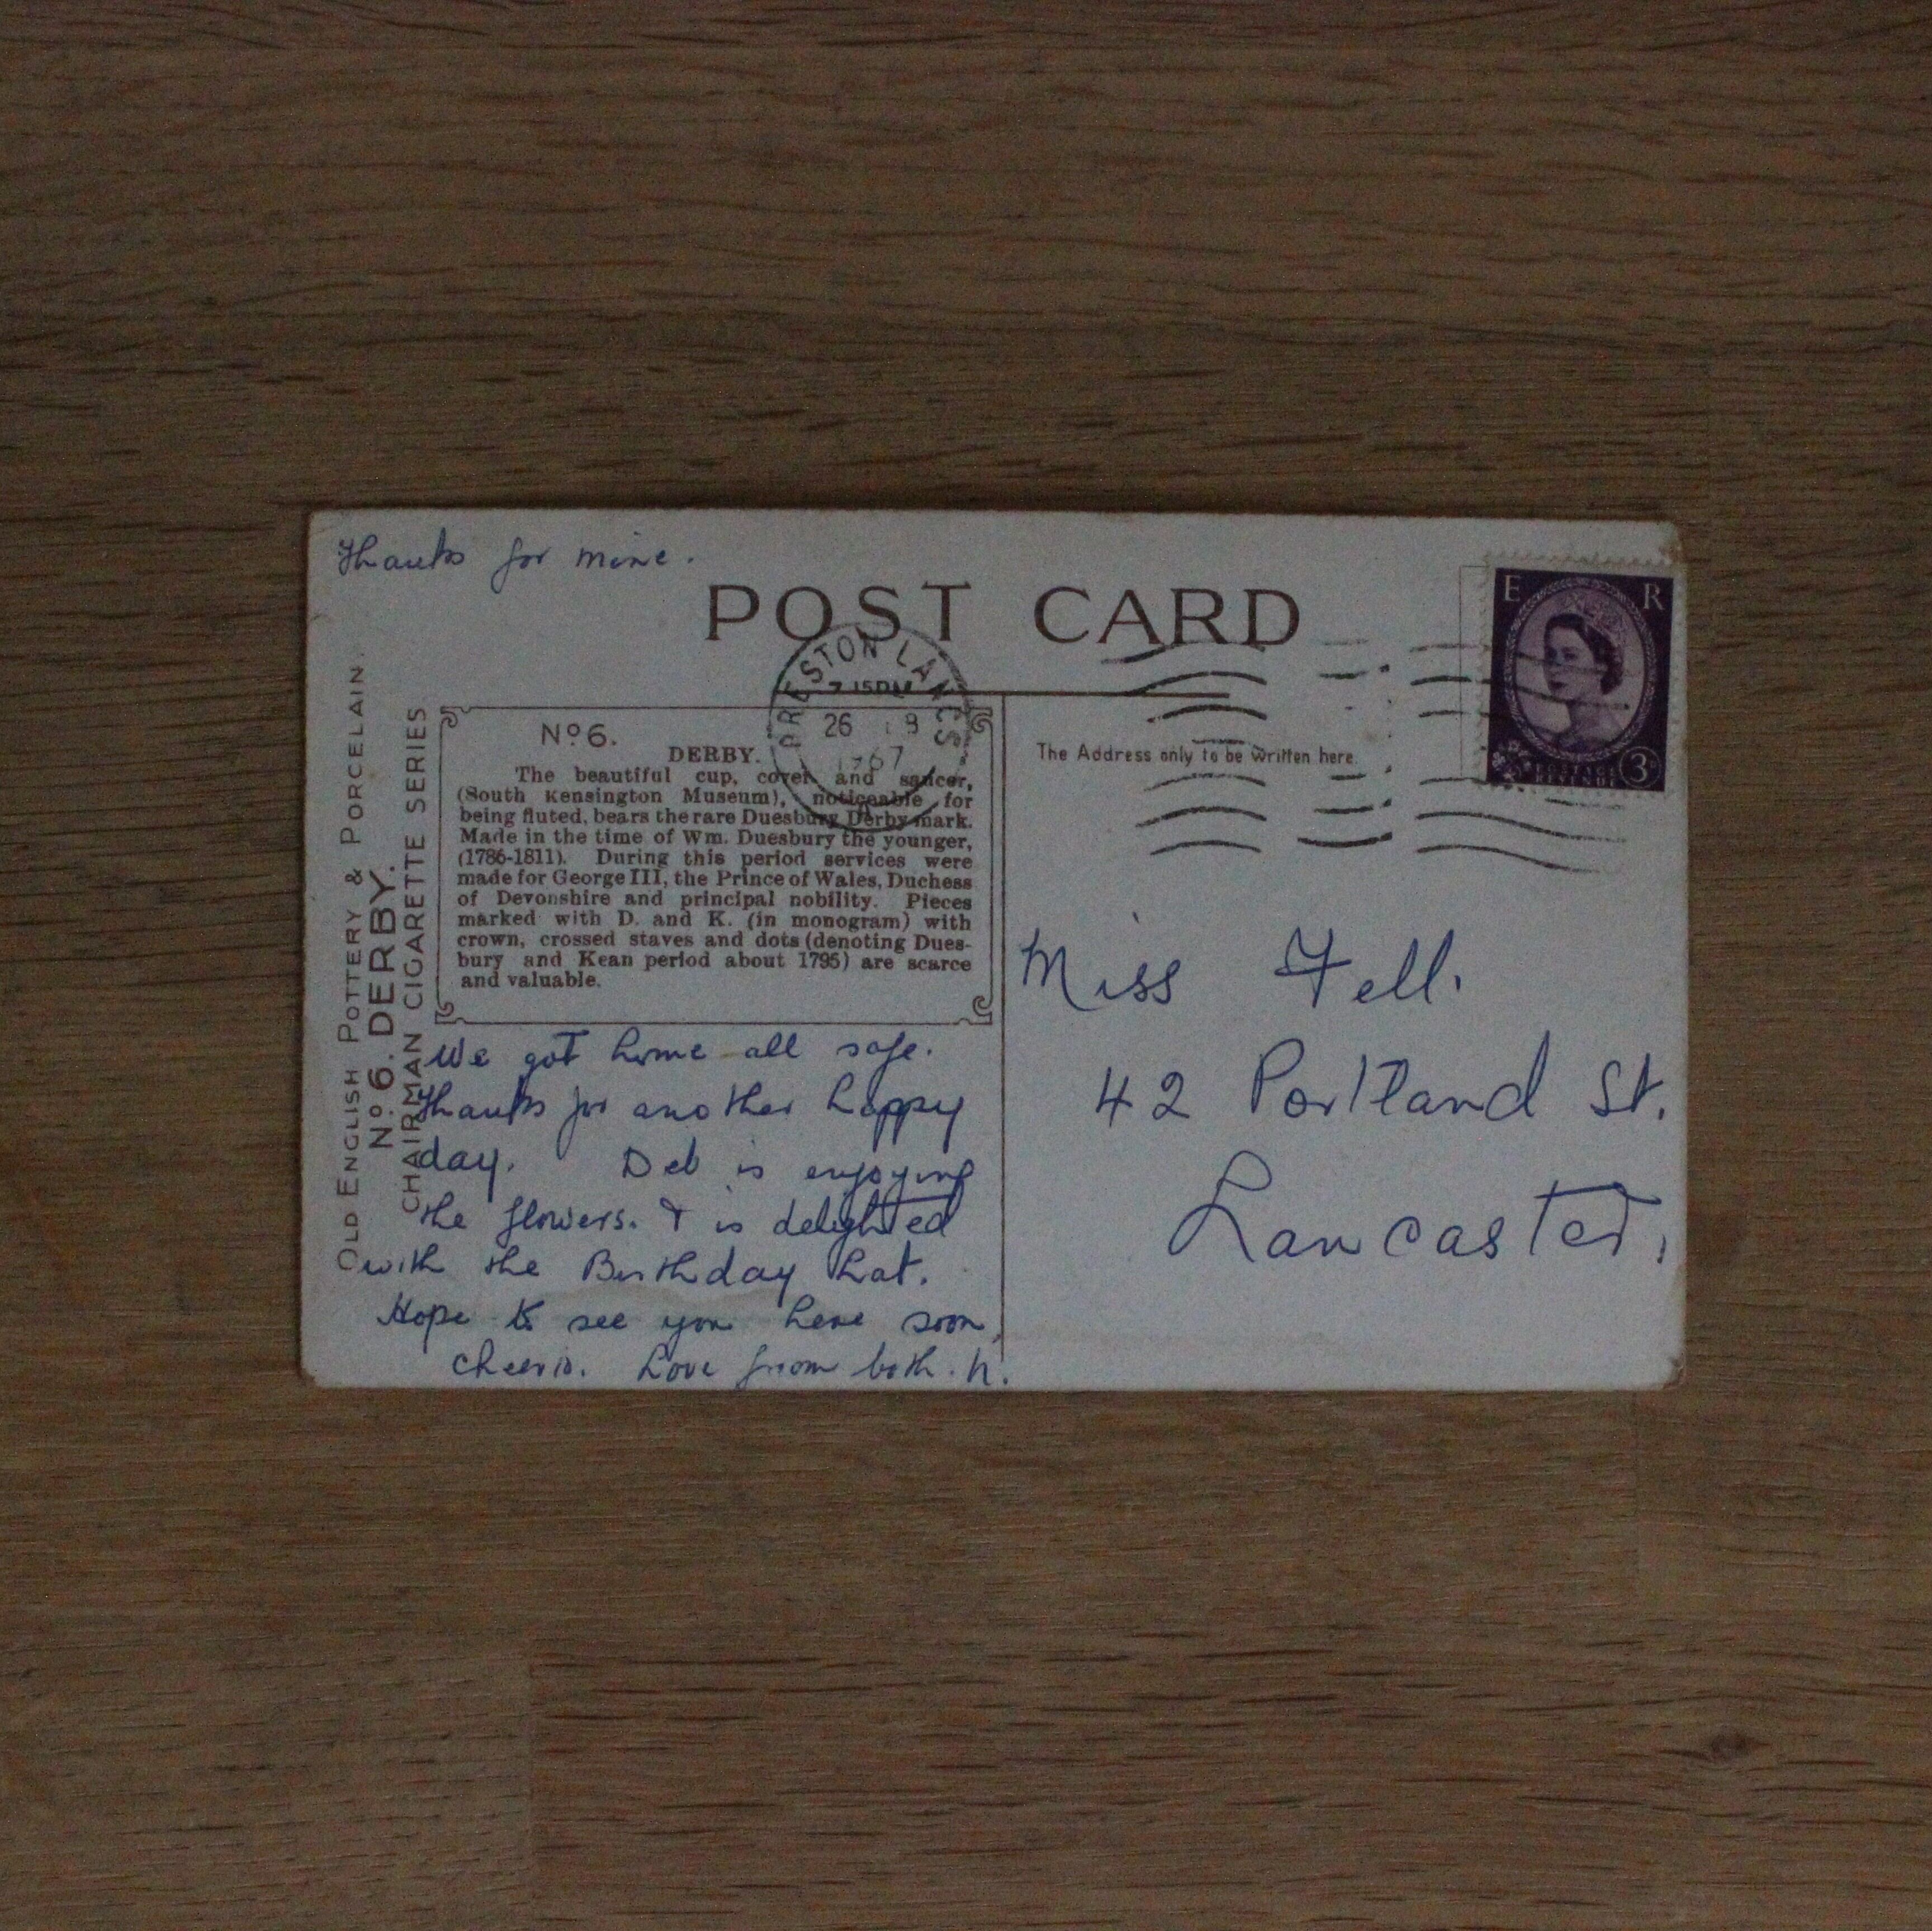 Thanks for mine.
POST CARD
PRESTON LANCS
7 15PM
26 9
1967
A
E R
POSTAGE
REVENUE
3D
OLD ENGLISH POTTERY & PORCELAIN.
No 6. DERBY.
CHAIRMAN CIGARETTE SERIES
No 6.
DERBY.
The beautiful cup, cover and saucer,
(South Kensington Museum), noticeable for
being fluted, bears the rare Duesbury Derby mark.
Made in the time of Wm. Duesbury the younger,
(1786-1811). During this period services were
made for George III, the Prince of Wales, Duchess
of Devonshire and principal nobility. Pieces
marked with D. and K. (in monogram) with
crown, crossed staves and dots (denoting Dues-
bury and Kean period about 1795) are scarce
and valuable.
We got home all safe.
Thanks for another happy
day. Deb is enjoying
the flowers. & is delighted
with the Birthday hat.
Hope to see you here soon,
cheerio. Love from both. N.
The Address only to be written here.
Miss Fell.
42 Portland St.
Lancaster.